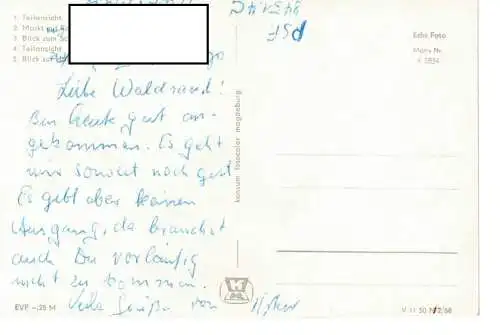 1. Teilansicht
2. Markt
3. Blick zum Sc
4. Teilansicht
5. Blick zum
PSF
Echt Foto
Liebe Waldraud!
Bin heute gut an-
gekommen. Es geht
mir soweit noch gut
Es gibt aber keinen
Ausgang, da brauchst
auch Du vorläufig
nicht zu kommen.
Viele Grüße von
konsum fotocolor magdeburg
K
EVP -,25 M
V 11 50 2/68